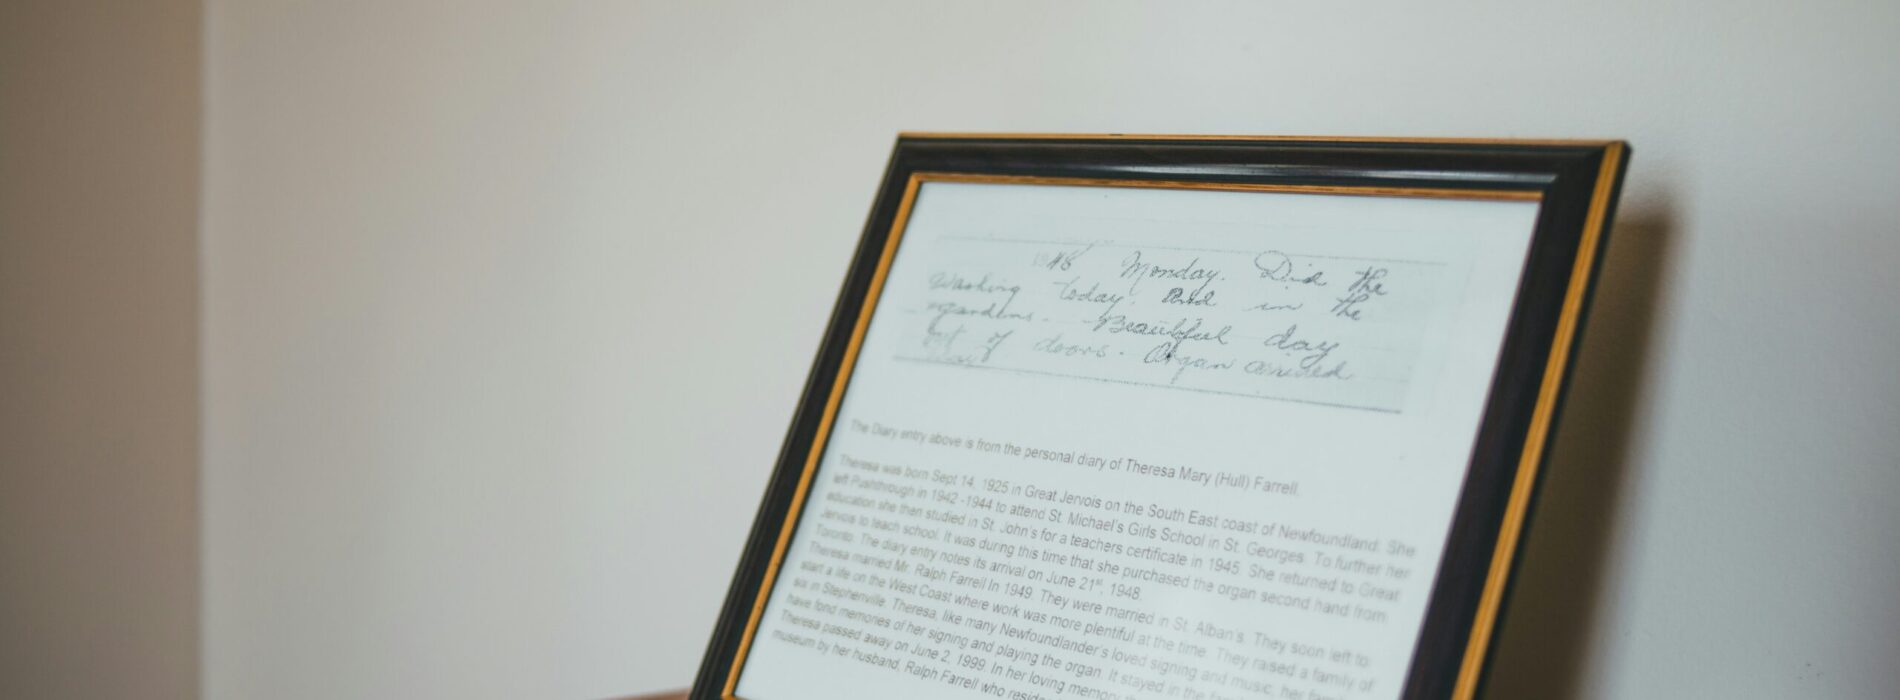 1948 Monday. Did the
Washing today, and in the
gardens. Beautiful day
out of doors. Organ arrived
The Diary entry above is from the personal diary of Theresa Mary (Hull) Farrell.
Theresa was born Sept 14, 1925 in Great Jervois on the South East coast of Newfoundland. She
left Pushthrough in 1942 -1944 to attend St. Michael's Girls School in St. Georges. To further her
education she then studied in St. John's for a teachers certificate in 1945. She returned to Great
Jervois to teach school. It was during this time that she purchased the organ second hand from
Toronto. The diary entry notes its arrival on June 21st, 1948.
Theresa married Mr. Ralph Farrell In 1949. They were married in St. Alban's. They soon left to
start a life on the West Coast where work was more plentiful at the time. They raised a family of
six in Stephenville. Theresa, like many Newfoundlander's loved signing and music, her
have fond memories of her signing and playing the organ. It stayed in the
Theresa passed away on June 2, 1999. In her loving memory
museum by her husband, Ralph Farrell who